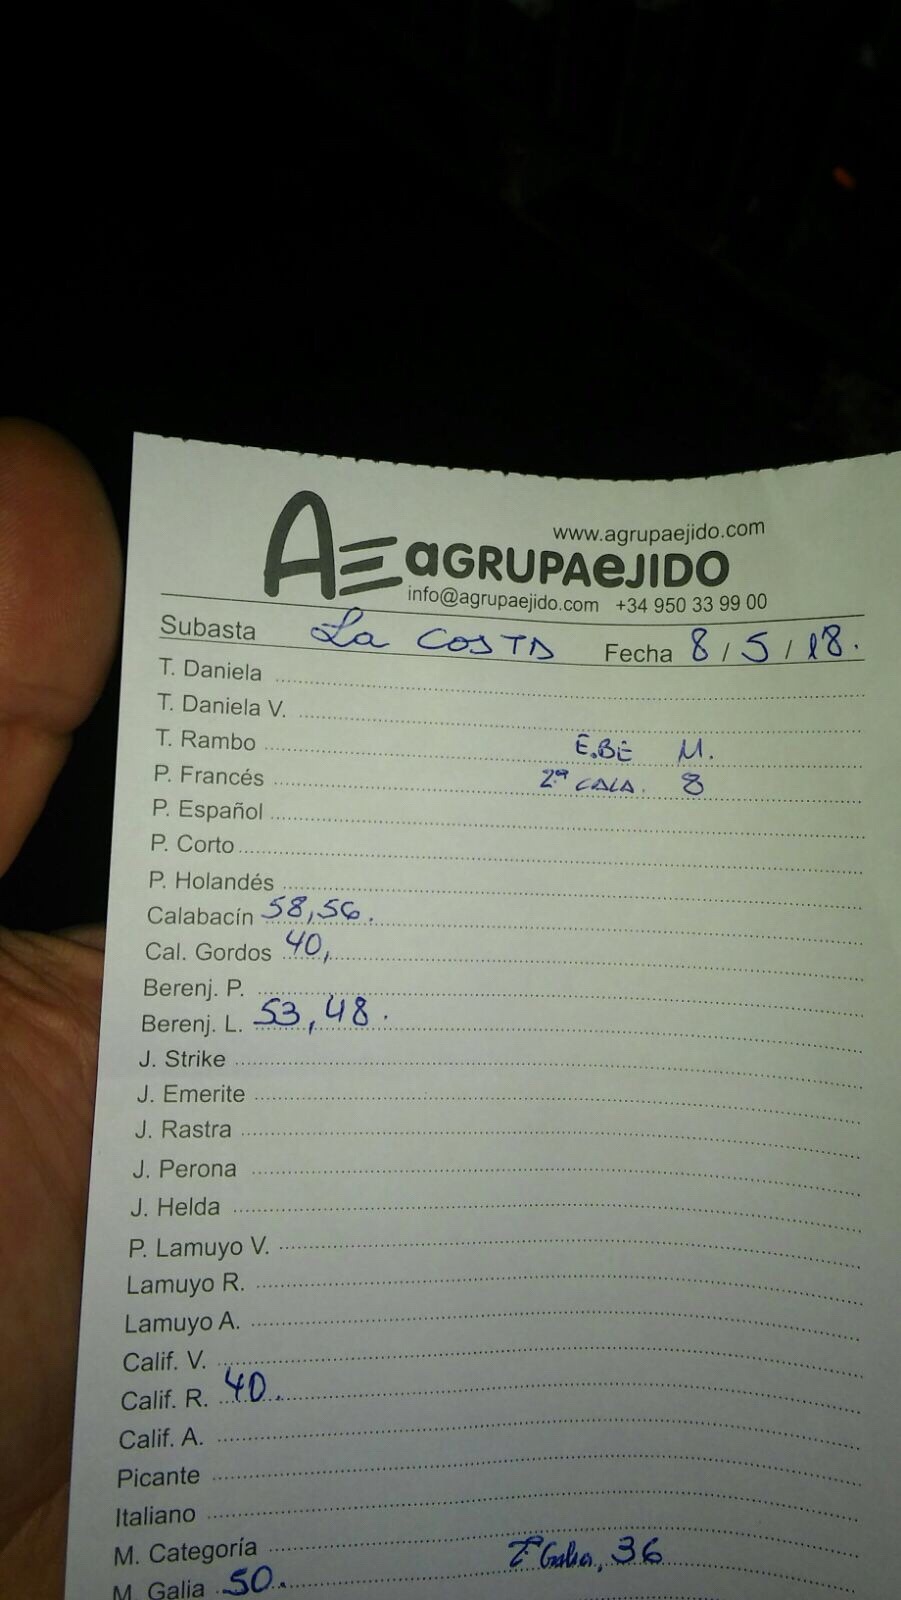 www.agrupaejido.com
AE aGRUPAeJIDO
info@agrupaejido.com +34 950 33 99 00
Subasta La COSTA Fecha 8/5/18.
T. Daniela
T. Daniela V.
T. Rambo E.BE M.
P. Francés 2ª CALA. 8
P. Español
P. Corto
P. Holandés
Calabacín 58,56.
Cal. Gordos 40,
Berenj. P.
Berenj. L. 53,48.
J. Strike
J. Emerite
J. Rastra
J. Perona
J. Helda
P. Lamuyo V.
Lamuyo R.
Lamuyo A.
Calif. V.
Calif. R. 40.
Calif. A.
Picante
Italiano
M. Categoría 2ª Galia, 36
M. Galia 50.